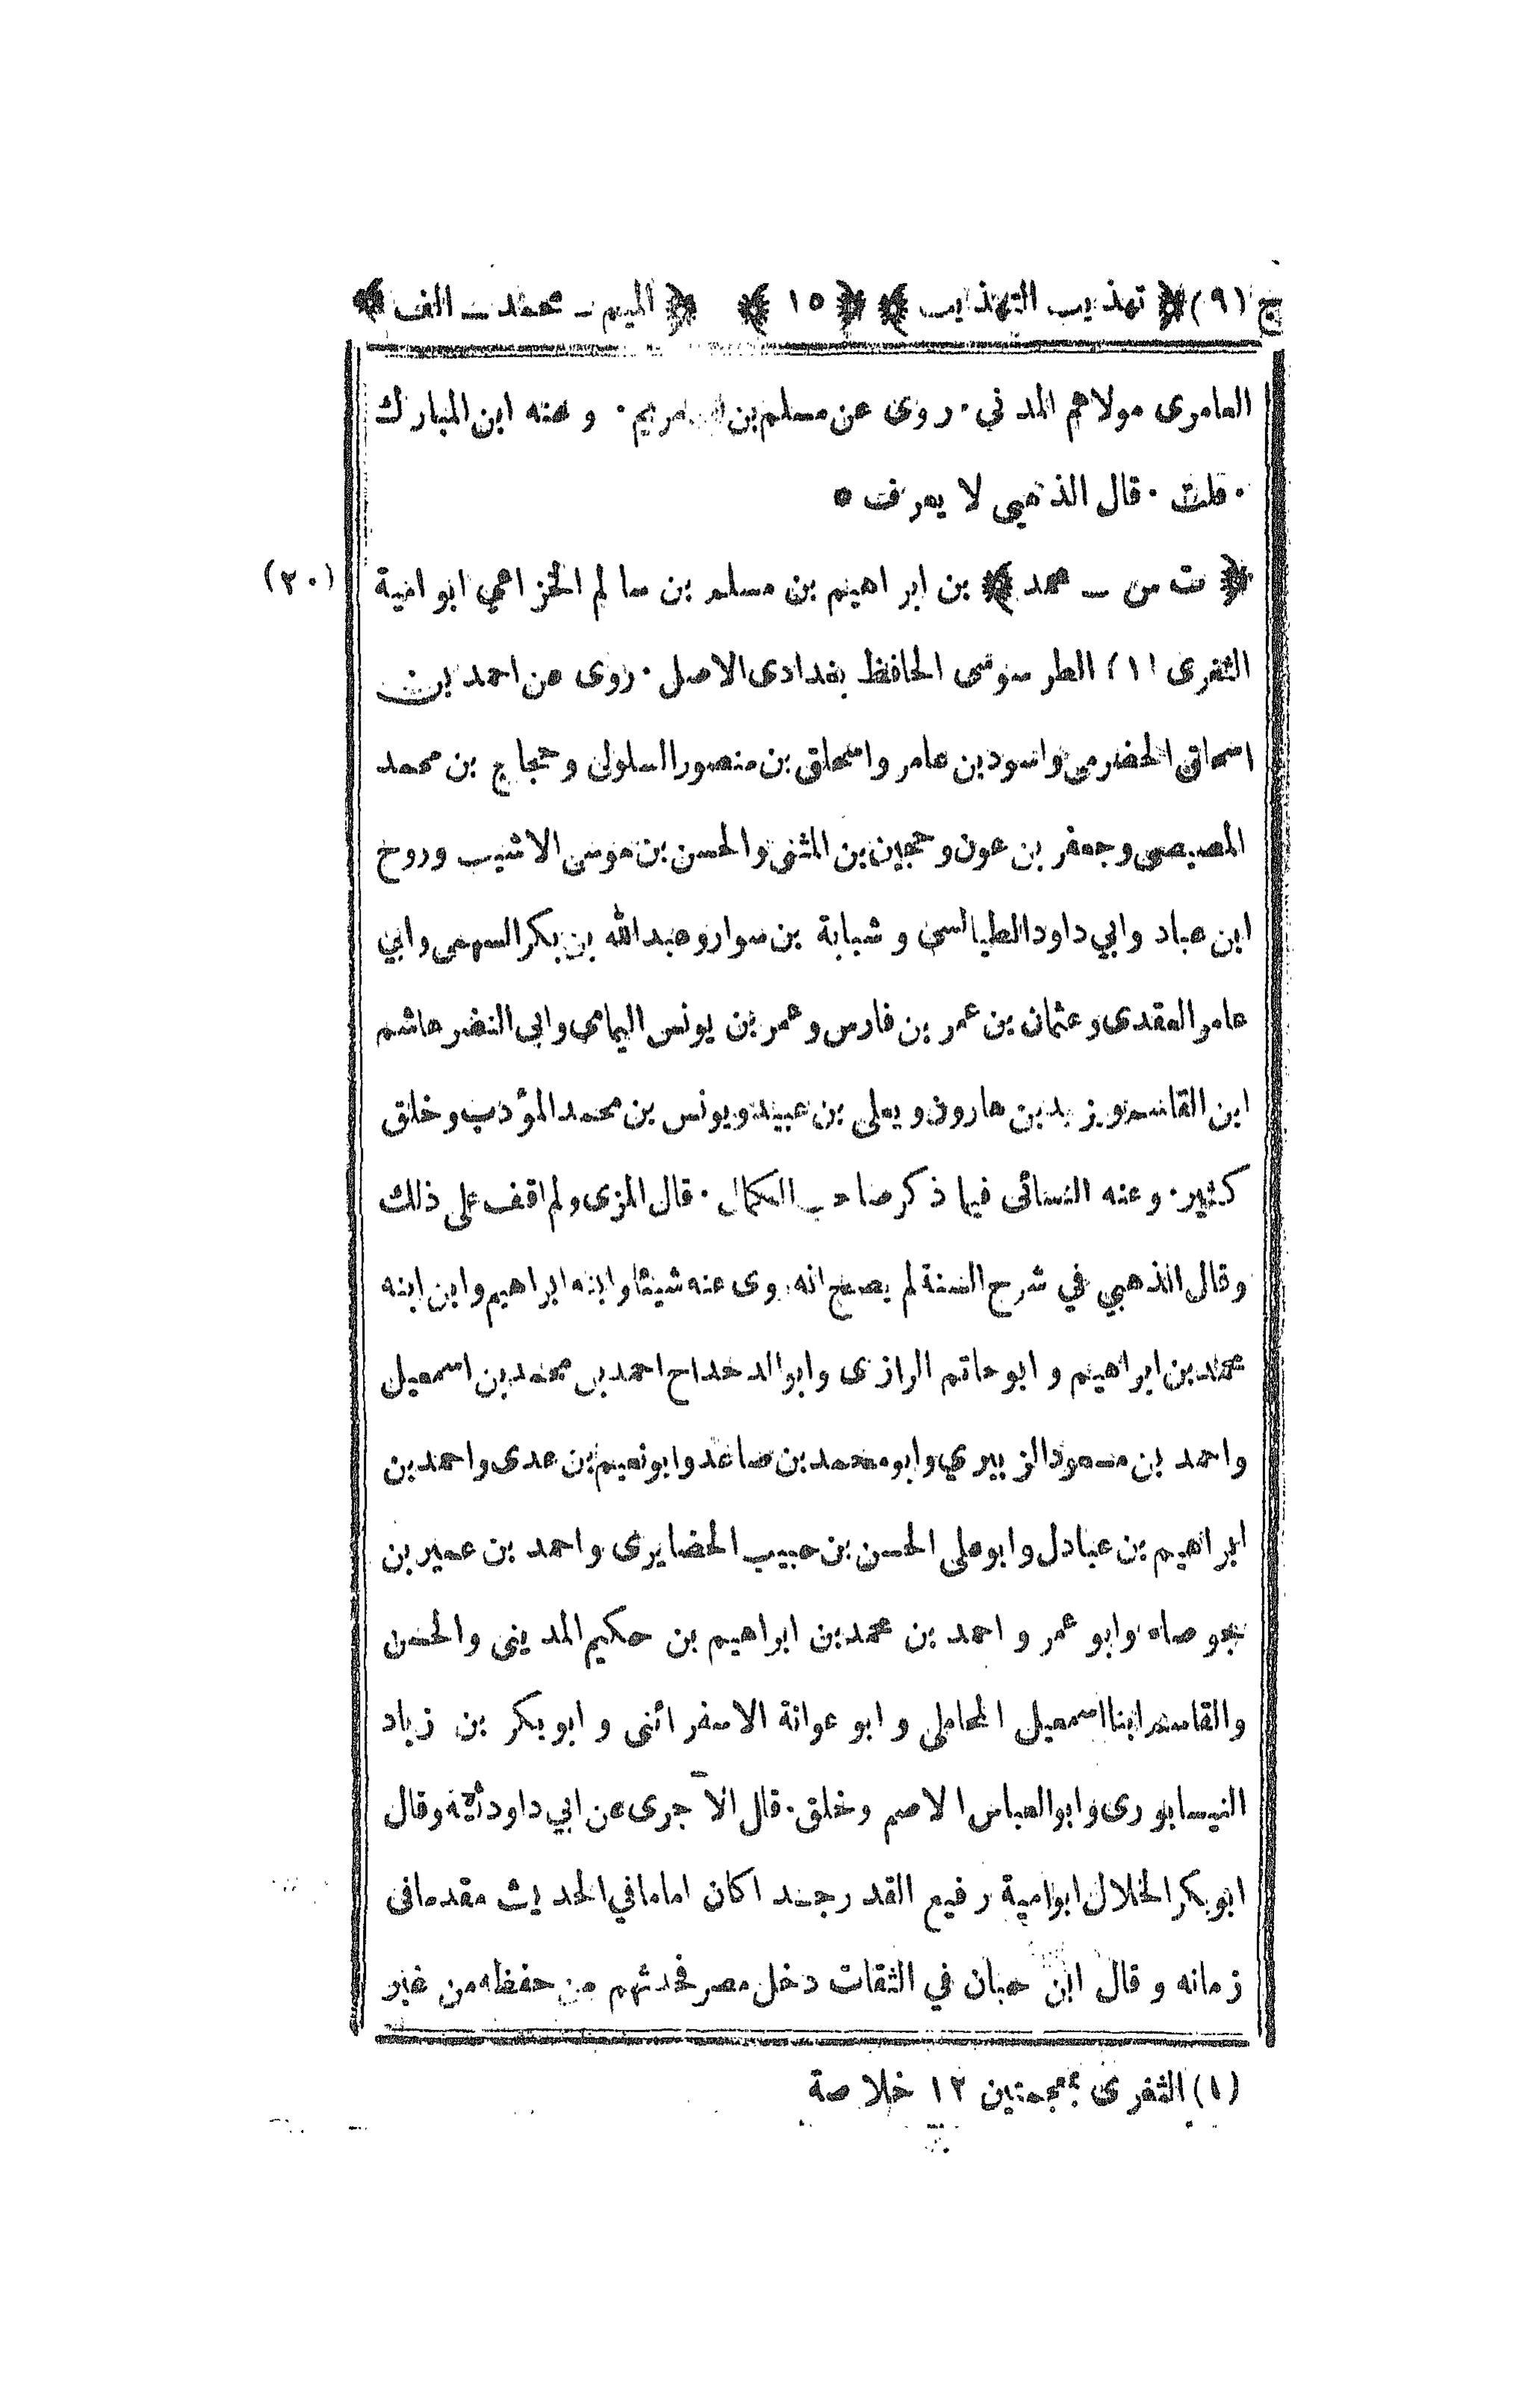 ج (٩) ﴿ تهذيب التهذيب ﴾ ﴿ ١٥ ﴾ ﴿ الميم ـ محمد ـ الف ﴾
العامرى مولاهم المدني . روى عن مسلم بن ابي مريم . وعنه ابن المبارك
. قلت . قال الذهبي لا يعرف ٥
﴿ ت س ـ محمد ﴾ بن ابراهيم بن مسلم بن سالم الخزاعي ابو امية
(٢٠)
الثغرى (١) الطرسوسى الحافظ بغدادى الاصل . روى عن احمد بن
اسحاق الحضرمي واسود بن عامر واسحاق بن منصور السلولى وحجاج بن محمد
المصيصى وجعفر بن عون وحجين بن المثنى والحسن بن موسى الاشيب وروح
ابن عباد وابي داود الطيالسى وشبابة بن سوار وعبدالله بن بكر السهمى وابي
عامر العقدى وعثمان بن عمر بن فارس وعمر بن يونس اليمامى وابى النضر هاشم
ابن القاسم ويزيد بن هارون ويعلى بن عبيد ويونس بن محمد المؤدب وخلق
كثير . وعنه النسائى فيما ذكر صاحب الكمال . قال المزى ولم اقف على ذلك
وقال الذهبي في شرح السنة لم يصح انه روى عنه شيئا وابنه ابراهيم وابن ابنه
محمد بن ابراهيم وابو حاتم الرازى وابو الدحداح احمد بن محمد بن اسمعيل
واحمد بن مسعود الزبيري وابو محمد بن صاعد وابو نعيم بن عدى واحمد بن
ابراهيم بن عبادل وابو على الحسن بن حبيب الحضايرى واحمد بن عمير بن
جوصاه وابو عمر و احمد بن محمد بن ابراهيم بن حكيم المدينى والحسن
والقاسم ابنا اسمعيل المحاملى وابو عوانة الاسفرائنى وابو بكر بن زياد
النيسابورى وابو العباس الاصم وخلق . قال الآجرى عن ابي داود ثقة وقال
ابو بكر الخلال ابو امية رفيع القدر جدا كان اماما في الحديث مقدما فى
زمانه وقال ابن حبان في الثقات دخل مصر فحدثهم من حفظه من غير
(١) الثغرى بمعجمتين ١٢ خلاصة